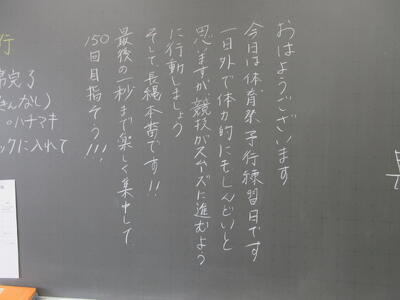 おはようございます
今日は体育祭予行練習日です
一日外で体力的にもしんどいと
思いますが、競技がスムーズに進むよう
に行動しましょう
そして、長縄本番です!!
最後の一秒まで楽しく集中して
150回目指そう!!!
行
完了
なし)
◦ハチマキ
ックに入れて